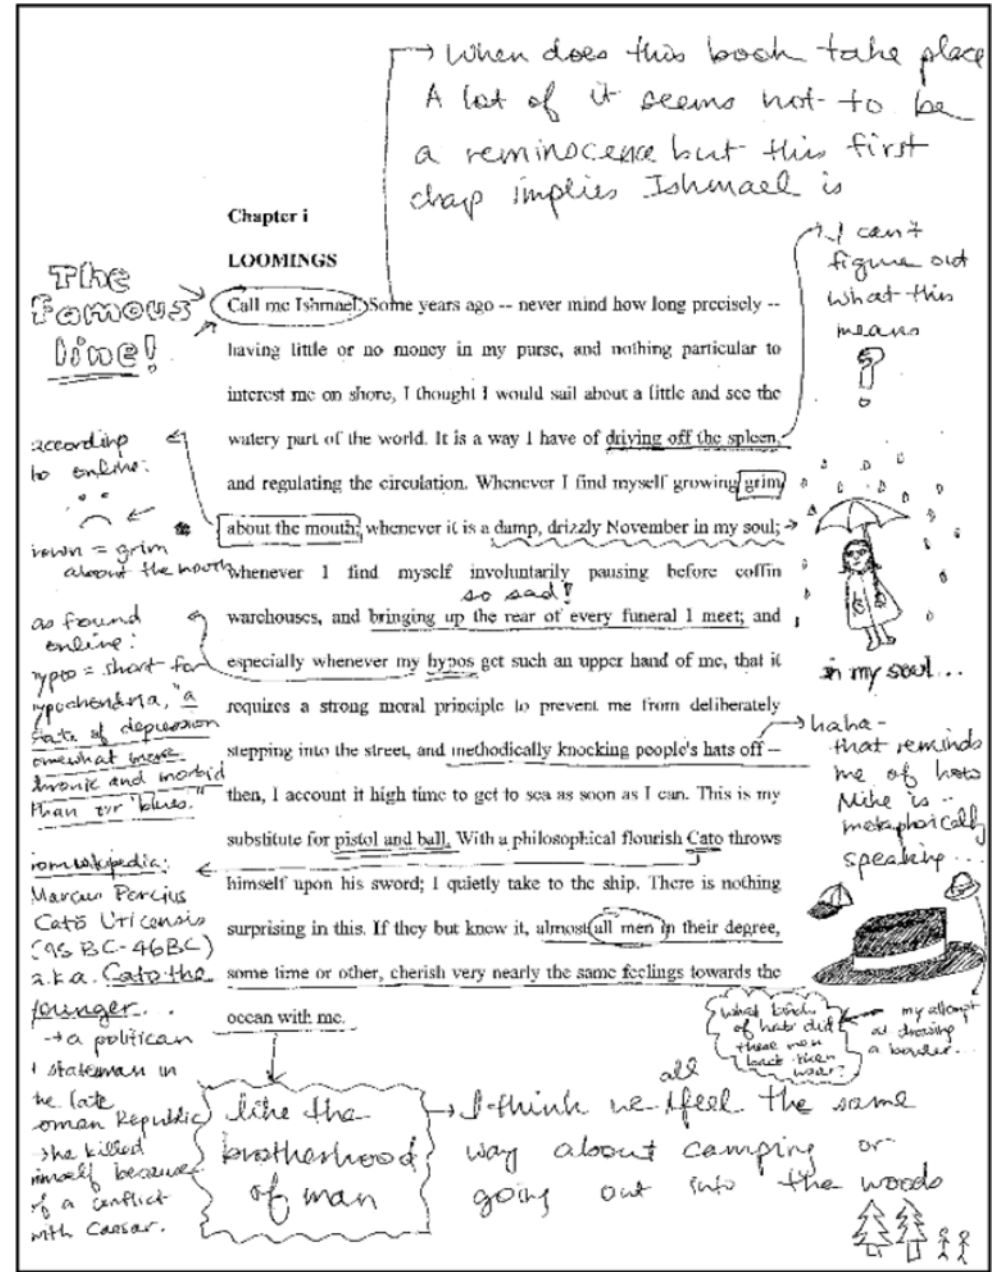 When does this book take place
A lot of it seems not to be
a reminocence but this first
chap implies Ishmael is
Chapter i
LOOMINGS
The
famous
line!
I can't
figure out
what this
means
?
Call me Ishmael. Some years ago -- never mind how long precisely --
having little or no money in my purse, and nothing particular to
interest me on shore, I thought I would sail about a little and see the
watery part of the world. It is a way I have of driving off the spleen,
and regulating the circulation. Whenever I find myself growing grim
about the mouth; whenever it is a damp, drizzly November in my soul;
whenever I find myself involuntarily pausing before coffin
so sad!
warehouses, and bringing up the rear of every funeral I meet; and
especially whenever my hypos get such an upper hand of me, that it
requires a strong moral principle to prevent me from deliberately
stepping into the street, and methodically knocking people's hats off --
then, I account it high time to get to sea as soon as I can. This is my
substitute for pistol and ball. With a philosophical flourish Cato throws
himself upon his sword; I quietly take to the ship. There is nothing
surprising in this. If they but knew it, almost all men in their degree,
some time or other, cherish very nearly the same feelings towards the
ocean with me.
according
to online:
rown = grim
about the mouth
as found
online:
ypo = short for
ypochondria, "a
state of depression
omewhat more
hronic and morbid
than our "blues."
rom wikipedia:
Marcus Porcius
Cato Uticensis
(95 BC-46BC)
a.k.a. Cato the
Younger...
→ a politican
statesman in
he late
oman Republic
→ he killed
imself because
of a conflict
with Caesar.
in my soul...
haha -
that reminds
me of hats
Mike is --
metaphorically
speaking...
what kinds
of hats did
these men
back then
wear?
my attempt
at drawing
a bowler...
like the
brotherhood
of man
I think we all feel the same
way about camping or
going out into the woods